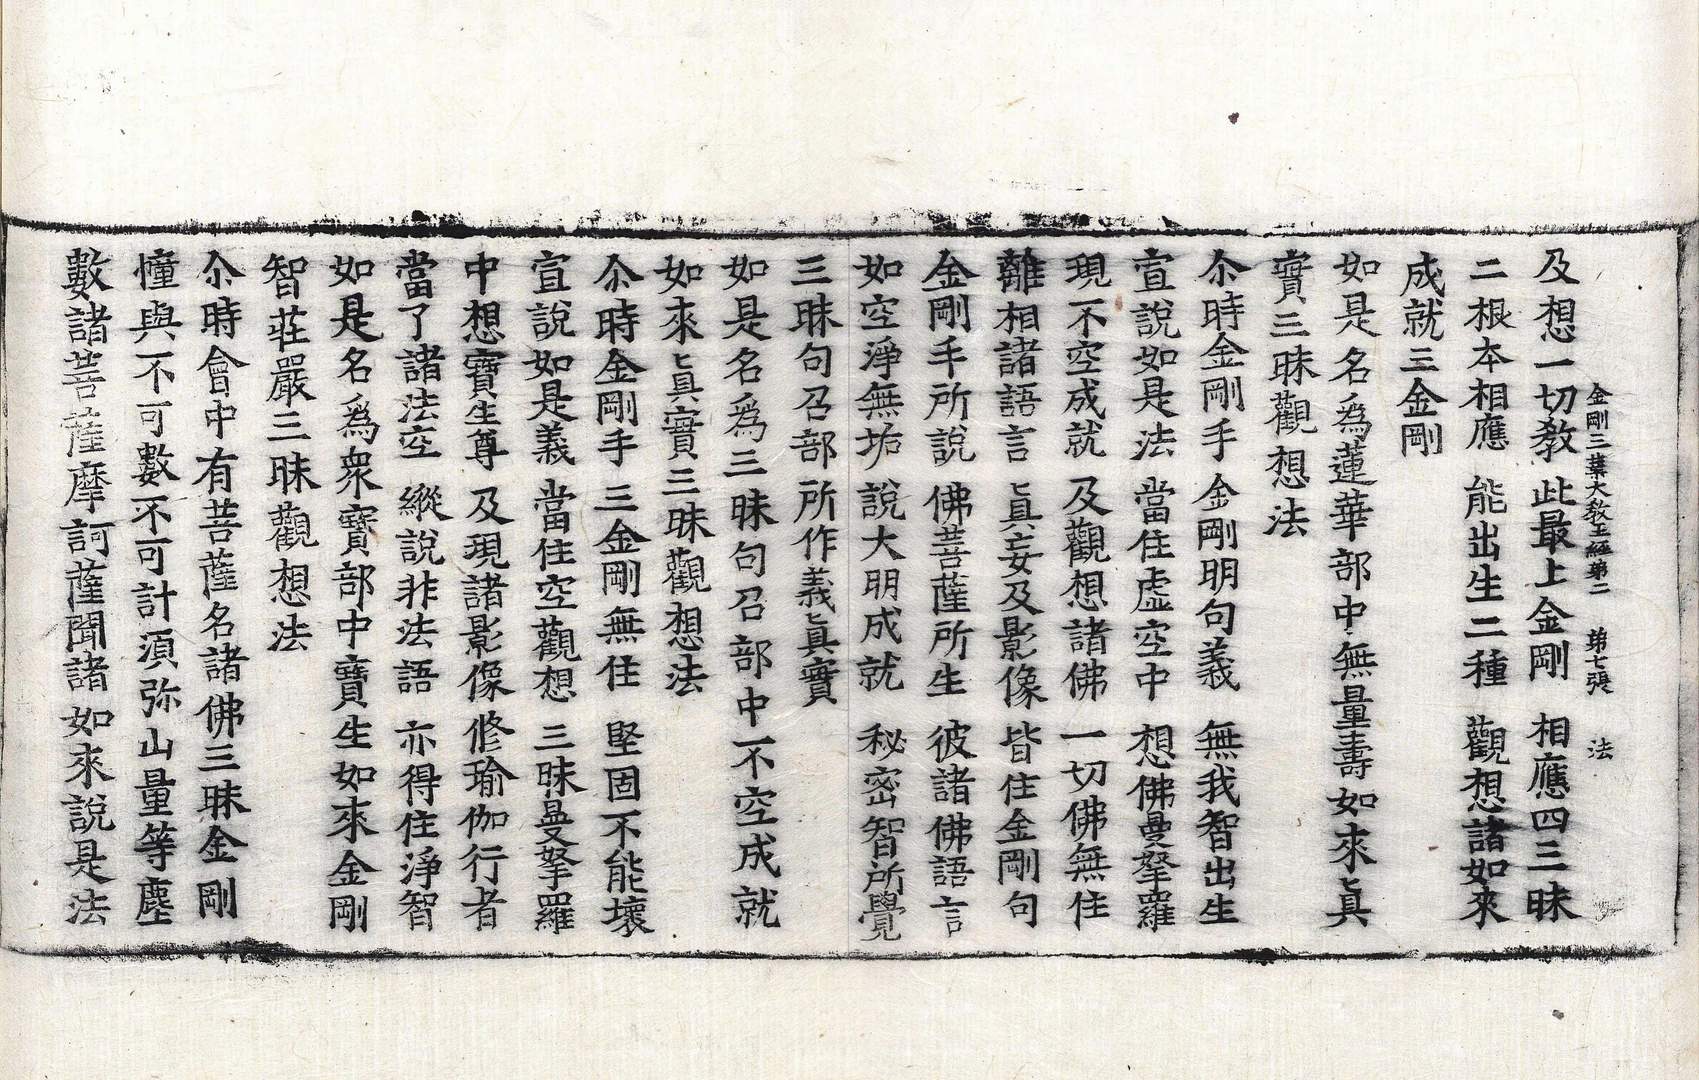 金剛三業大教王經第二　第七張　法
及想一切教　此最上金剛　相應四三昧
二根本相應　能出生二種　觀想諸如來
成就三金剛
如是名爲蓮華部中無量壽如來眞
實三昧觀想法
尒時金剛手　金剛明句義　無我智出生
宣說如是法　當住虛空中　想佛曼拏羅
現不空成就　及觀想諸佛　一切佛無住
離相諸語言　眞妄及影像　皆住金剛句
金剛手所說　佛菩薩所生　彼諸佛語言
如空淨無垢　說大明成就　秘密智所覺
三昧句召部　所作義眞實
如是名爲三昧句召部中不空成就
如來眞實三昧觀想法
尒時金剛手　三金剛無住　堅固不能壞
宣說如是義　當住空觀想　三昧曼拏羅
中想寶生尊　及現諸影像　修瑜伽行者
當了諸法空　縱說非法語　亦得住淨智
如是名爲衆寶部中寶生如來金剛
智莊嚴三昧觀想法
尒時會中有菩薩名諸佛三昧金剛
幢與不可數不可計須弥山量等塵
數諸菩薩摩訶薩聞諸如來說是法